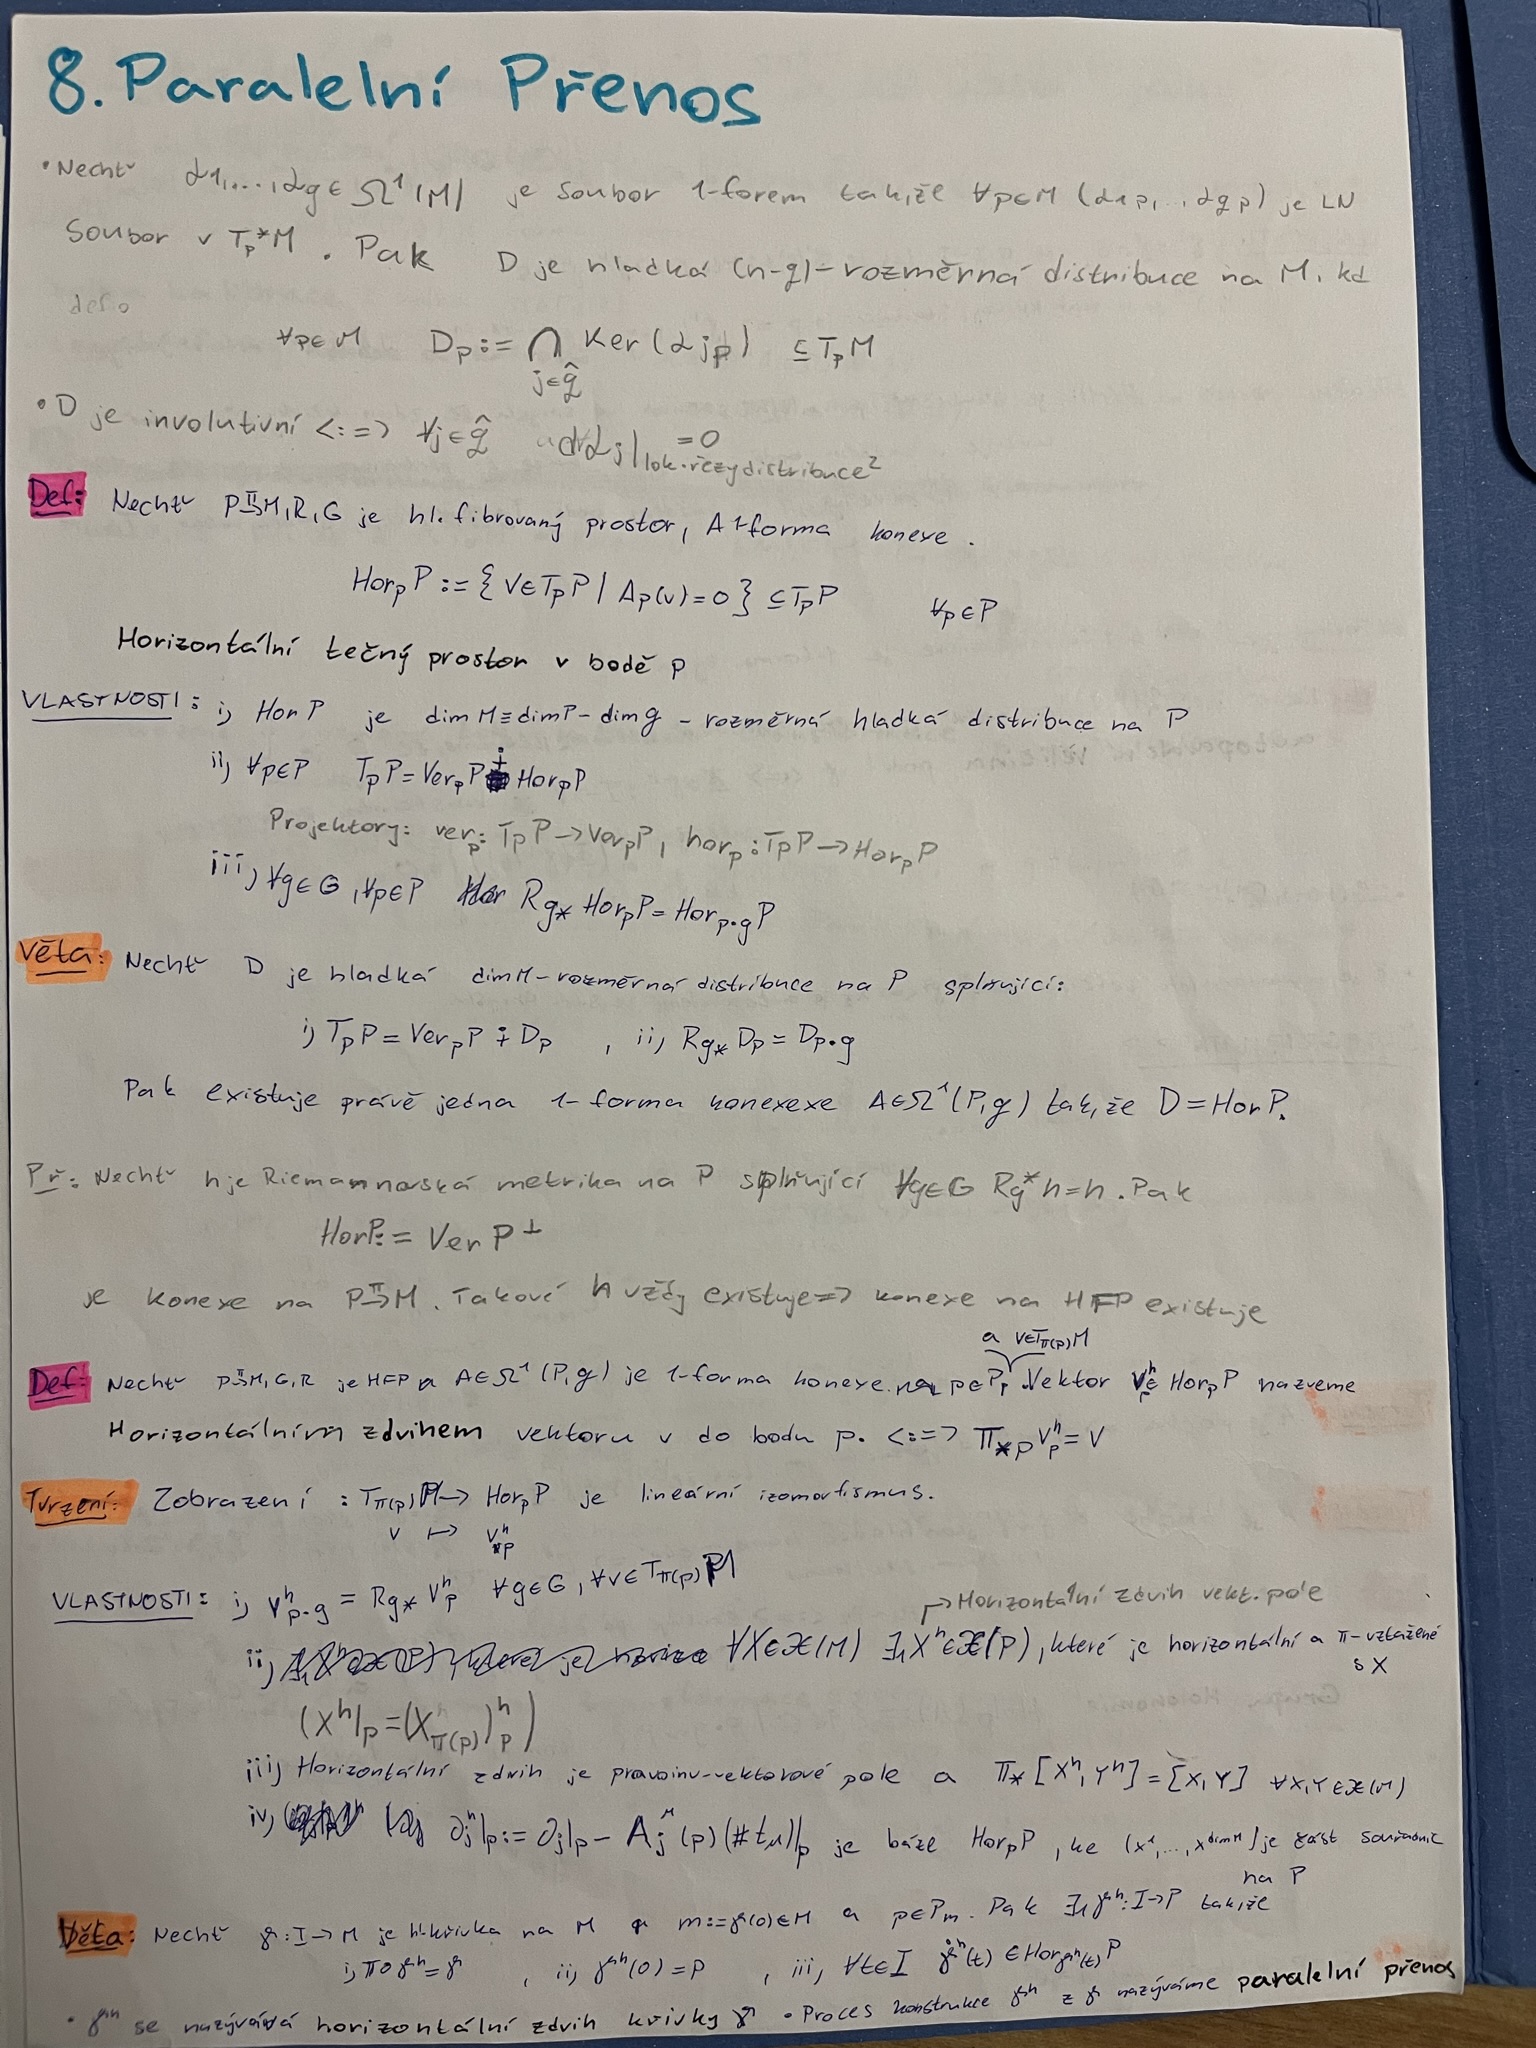 8. Paralelní Přenos
• Nechť α1,...,αq ∈ Ω¹(M) je soubor 1-forem tak, že ∀p∈M (α1p,...,αqp) je LN
soubor v Tp*M. Pak D je hladká (n-q)-rozměrná distribuce na M, kd
def.
∀p∈M Dp := ⋂ Ker(αjp) ⊆ TpM
j∈q̂
• D je involutivní <:=> ∀j∈q̂ dαj| =0
lok. řezy distribuce²
Def: Nechť P→M,R,G je hl. fibrovaný prostor, A 1-forma konexe.
π
HorpP := {v∈TpP | Ap(v)=0} ⊆ TpP ∀p∈P
Horizontální tečný prostor v bodě p
VLASTNOSTI: i) HorP je dimM≡dimP-dim g - rozměrná hladká distribuce na P
ii) ∀p∈P TpP = VerpP ∔ HorpP
Projektory: verp: TpP→VerpP, horp: TpP→HorpP
iii) ∀g∈G, ∀p∈P Rg* HorpP = Horp·gP
Věta: Nechť D je hladká dimM-rozměrná distribuce na P splňující:
i) TpP = VerpP ∔ Dp , ii) Rg* Dp = Dp·g
Pak existuje právě jedna 1-forma konexexe A∈Ω¹(P,g) tak, že D=HorP.
Př: Nechť h je Riemannovská metrika na P splňující ∀g∈G Rg*h=h. Pak
HorP := VerP⊥
je konexe na P→M. Takové h vždy existuje => konexe na HFP existuje
a v∈Tπ(p)M
Def: Nechť P→M,G,R je HFP a A∈Ω¹(P,g) je 1-forma konexe. p∈P, Vektor vʰp ∈ HorpP nazveme
Horizontálním zdvihem vektoru v do bodu p. <:=> π*p vʰp = v
Tvrzení: Zobrazení : Tπ(p)M → HorpP je lineární izomorfismus.
v ↦ vʰp
VLASTNOSTI: i) vʰp·g = Rg* vʰp ∀g∈G, ∀v∈Tπ(p)M
↱Horizontální zdvih vekt. pole
ii) ∀X∈𝔛(M) ∃₁Xʰ∈𝔛(P), které je horizontální a π-vztažené
s X
(Xʰ|p = (Xπ(p))ʰp)
iii) Horizontální zdvih je pravoinv. vektorové pole a π*[Xʰ,Yʰ] = [X,Y] ∀X,Y∈𝔛(M)
iv) ∂jʰ|p := ∂j|p - Ajᵘ(p)(#tμ)|p je báze HorpP, kde (x¹,...,x^dimM) je část souřadnic
na P
Věta: Nechť γ: I→M je hl. křivka na M a m:=γ(0)∈M a p∈Pm. Pak ∃₁γʰ: I→P tak, že
i) π∘γʰ=γ , ii) γʰ(0)=p , iii) ∀t∈I γ̇ʰ(t) ∈ Horγʰ(t)P
• γʰ se nazývá horizontální zdvih křivky γ • Proces konstrukce γʰ z γ nazýváme paralelní přenos